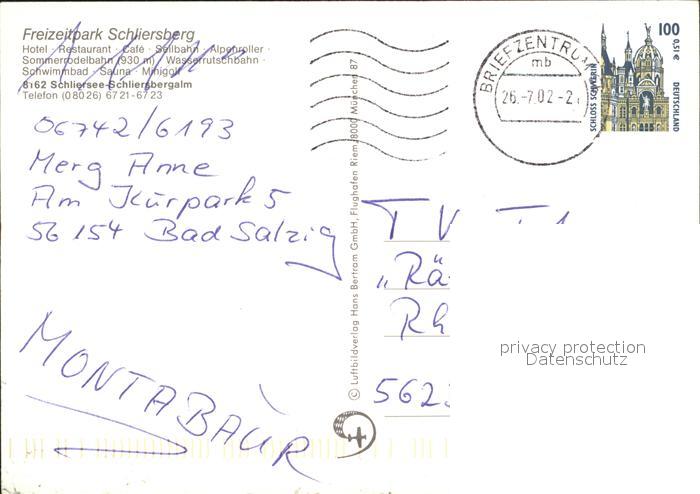 Freizeitpark Schliersberg
Hotel · Restaurant · Café · Seilbahn · Alpenroller ·
Sommerrodelbahn (930 m) · Wasserrutschbahn ·
Schwimmbad · Sauna · Minigolf
8162 Schliersee-Schliersbergalm
Telefon (08026) 6721-6723
06742/6193
Merg Anne
Am Kurpark 5
56154 Bad Salzig
MONTABAUR
© Luftbildverlag Hans Bertram GmbH, Flughafen Riem, 8000 München 87
BRIEFZENTRUM
mb
26.-7.02-2
100
0,51 €
SCHLOSS SCHWERIN
DEUTSCHLAND
TV
„Rä
Rh
562
privacy protection
Datenschutz